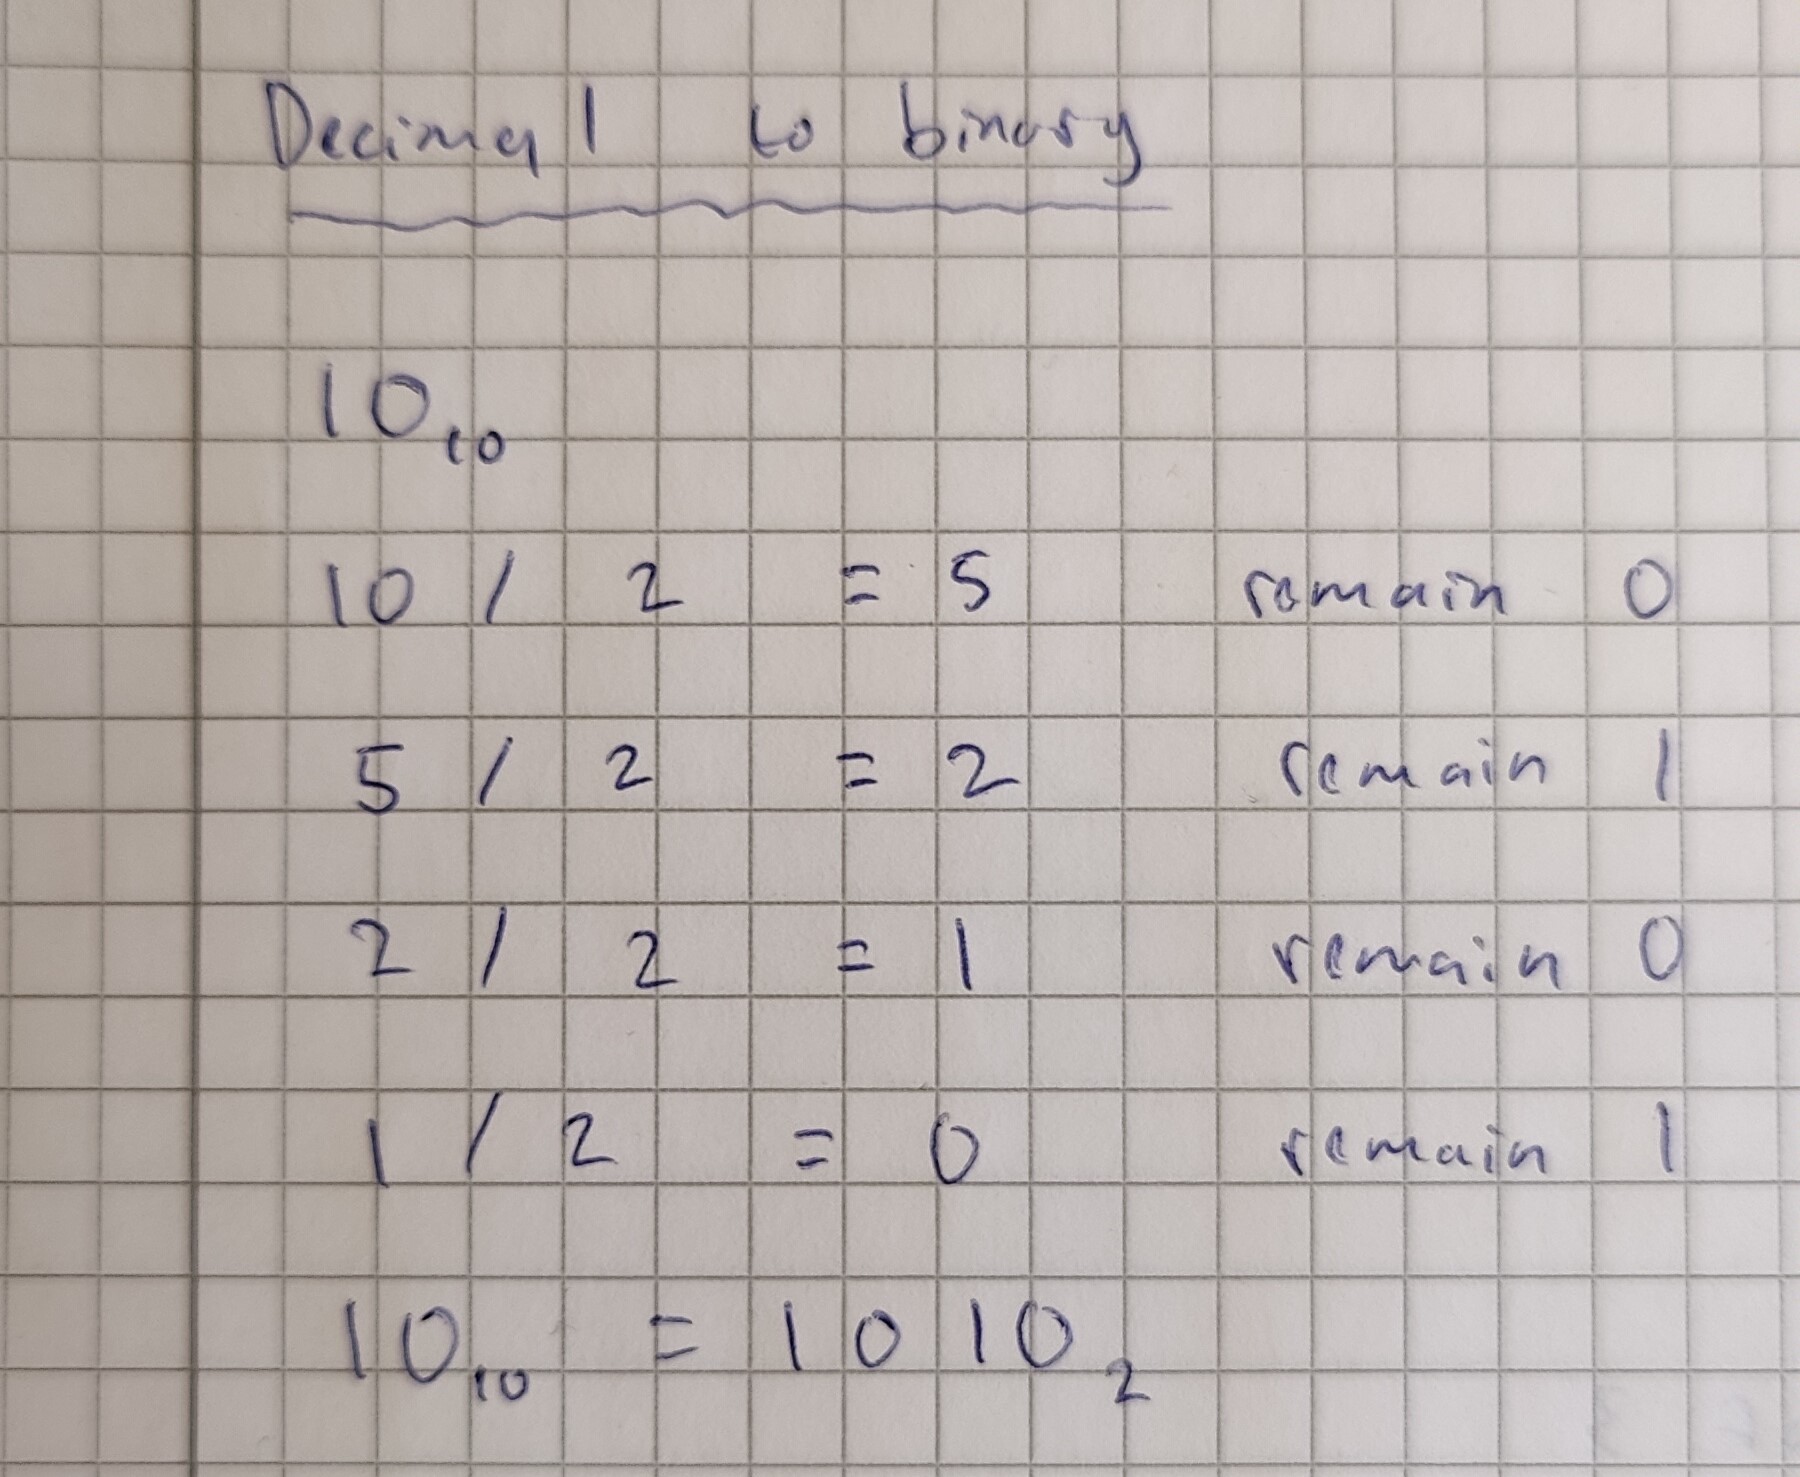 Decimal to binary
10₁₀
10 / 2 = 5 remain 0
5 / 2 = 2 remain 1
2 / 2 = 1 remain 0
1 / 2 = 0 remain 1
10₁₀ = 1010₂